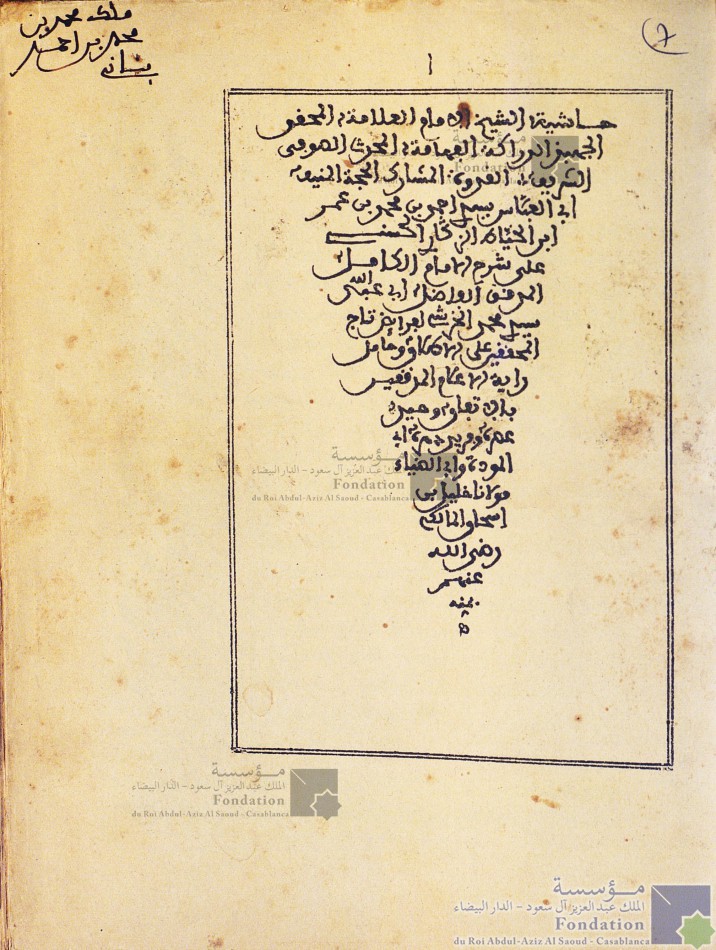 ملك محمد بن
محمد بن احمد
بناني
7
1
حاشية الشيخ الامام العلامة المحقق
الجهبذ الدراكة الفهامة المحدث الصوفي
الشريف القدوة المشارك الحجة المنيف
ابي العباس سيدي احمد بن محمد بن عمر
ابن الخياط الزكاري الحسني
على شرح الامام الكامل
المرتقي الفاضل ابي عبد الله
سيدي محمد الخرشي لفرائض تاج
المحققين على الاطلاق وحامل
راية الاعلام المدققين
بلا
عصره وفريد دهره ابي
المودة وابي الضياء
مولانا خليل بن
اسحاق المالكي
رضي الله
عنهم
بمنه
مؤسسة
الملك عبد العزيز آل سعود - الدار البيضاء
Fondation
du Roi Abdul-Aziz Al Saoud - Casablanca
مؤسسة
الملك عبد العزيز آل سعود - الدار البيضاء
Fondation
du Roi Abdul-Aziz Al Saoud - Casablanca
مؤسسة
الملك عبد العزيز آل سعود - الدار البيضاء
Fondation
du Roi Abdul-Aziz Al Saoud - Casablanca